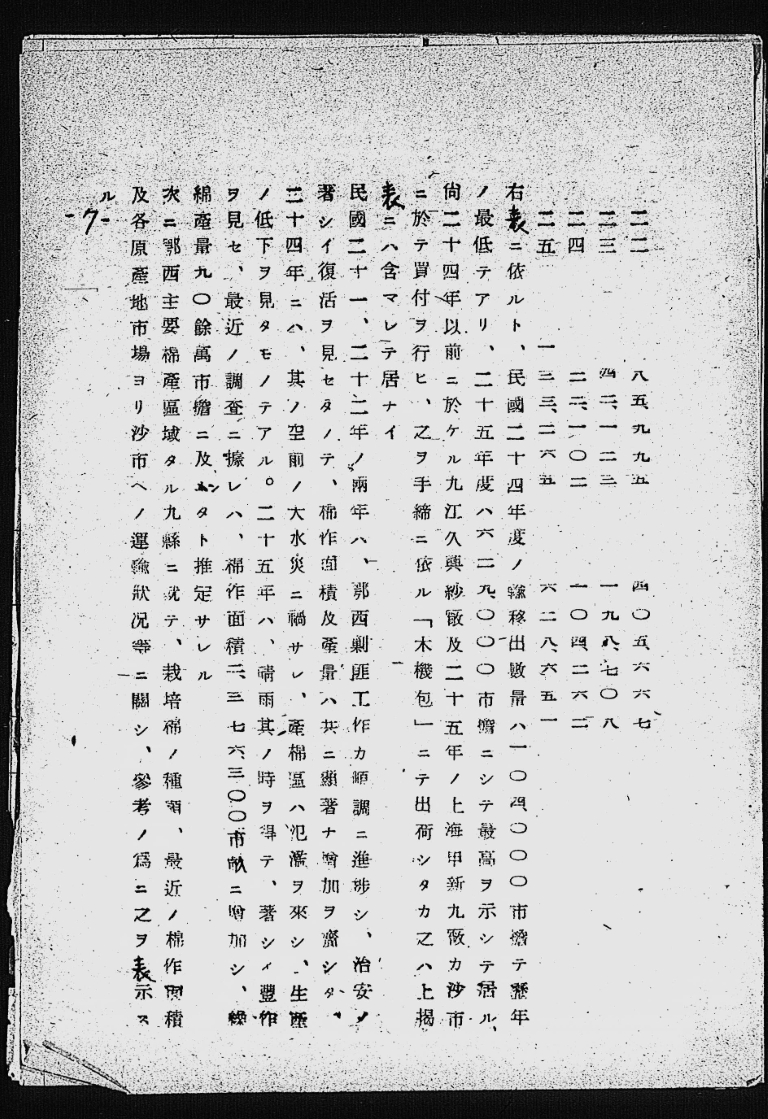 二二 八五、九九五 四〇五、六六七
二三 四二、一二三 一九八、七〇八
二四 二二、一〇二 一〇四、二六二
二五 一三三、二六五 六二八、六五一
右表ニ依ルト、民國二十四年度ノ輸移出數量ハ一〇四、〇〇〇市擔テ歷年
ノ最低テアリ、二十五年度ハ六二九、〇〇〇市擔ニシテ最高ヲ示シテ居ル、
尙二十四年以前ニ於ケル九江久興紗廠及二十五年ノ上海申新九廠カ沙市
ニ於テ買付ヲ行ヒ、之ヲ手締ニ依ル「木機包」ニテ出荷シタカ之ハ上揭
表ニハ含マレテ居ナイ
民國二十一、二十二年ノ兩年ハ、鄂西剿匪工作カ順調ニ進捗シ、治安ノ
著シイ復活ヲ見セタノテ、棉作面積及產量ハ共ニ顯著ナ增加ヲ齎シタ、
二十四年ニハ、其ノ空前ノ大水災ニ禍サレ、產棉區ハ氾濫ヲ來シ、生產
ノ低下ヲ見タモノテアル。二十五年ハ、晴雨其ノ時ヲ得テ、著シイ豐作
ヲ見セ、最近ノ調査ニ據レハ、棉作面積二、三七六、三〇〇市畝ニ增加シ、繰
綿產量九〇餘萬市擔ニ及ンタト推定サレル
次ニ鄂西主要棉產區域タル九縣ニ就テ、栽培棉ノ種類、最近ノ棉作面積
及各原產地市場ヨリ沙市ヘノ運輸狀況等ニ關シ、參考ノ爲ニ之ヲ表示ス
ル
-7-